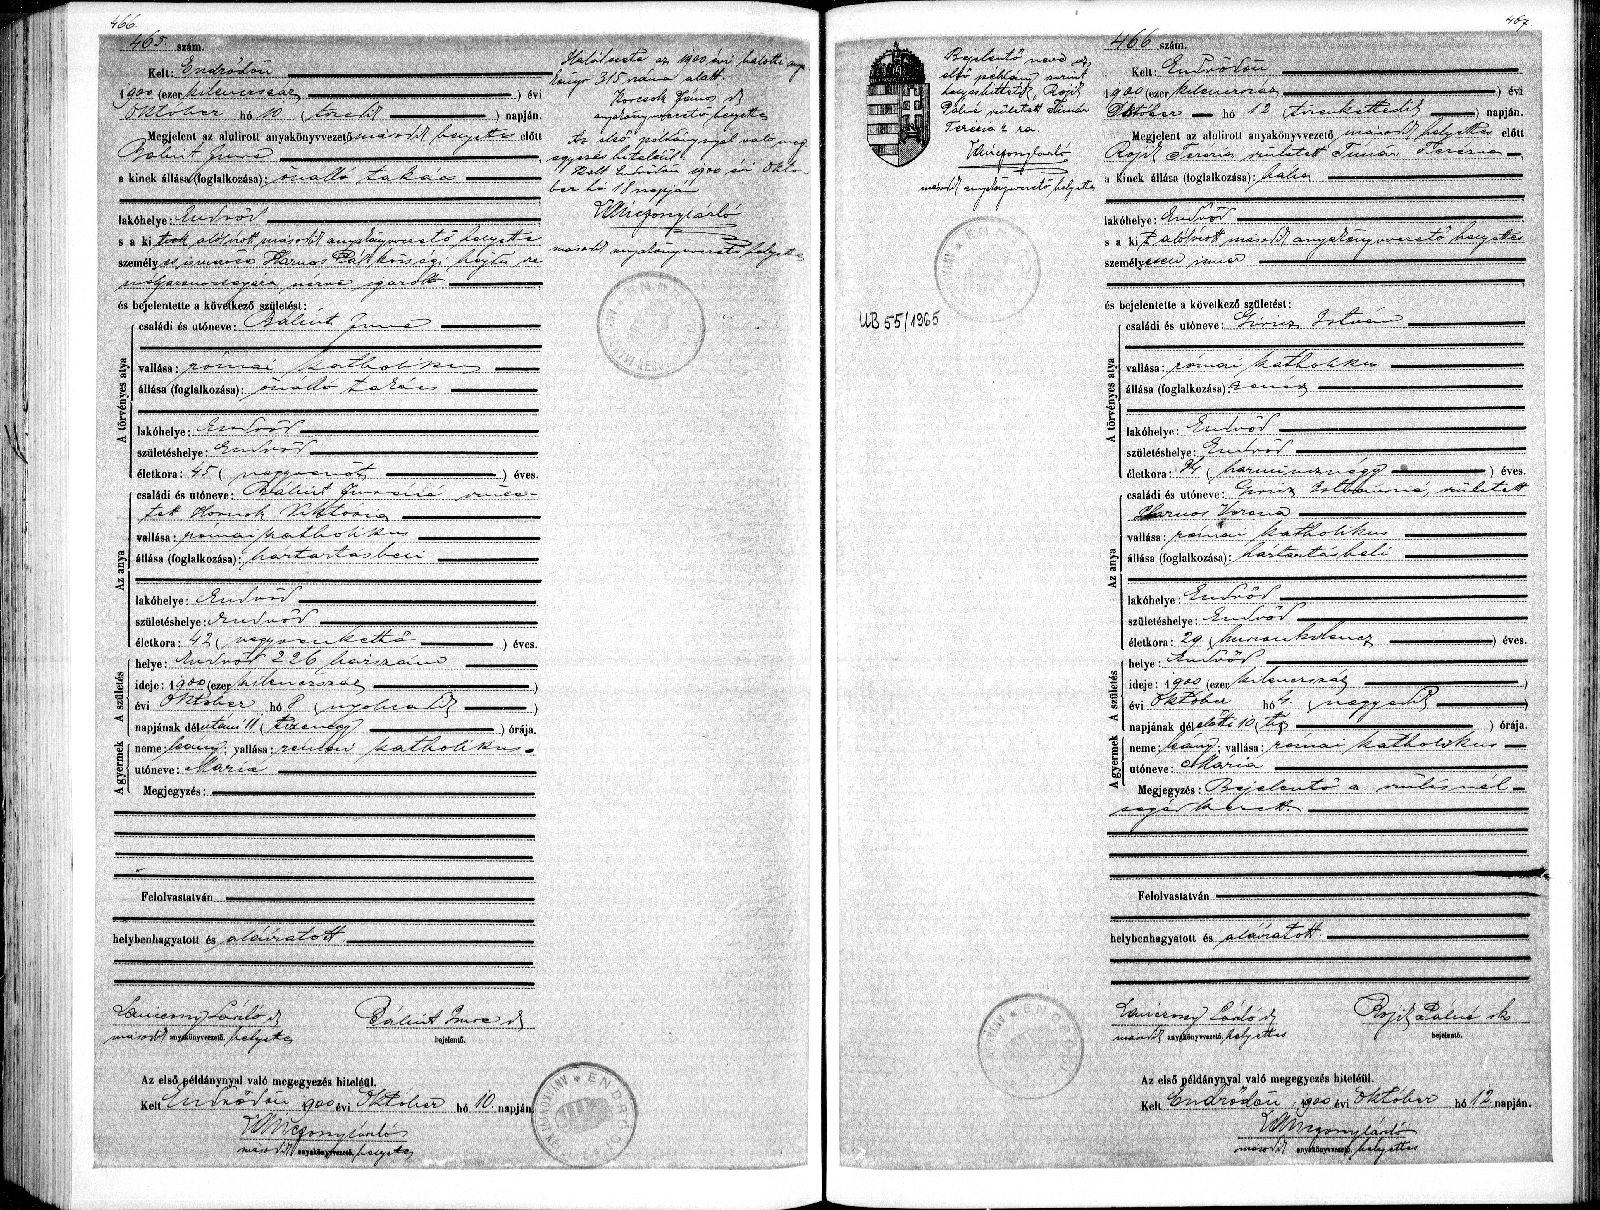 466
465 szám.
Kelt: Endrődön
1900 (ezer kilencszáz) évi
Október hó 10 (tizedik) napján.
Megjelent az alulirott anyakönyvvezető második helyettes előtt
Bálint Imre
a kinek állása (foglalkozása): önálló takács
lakóhelye: Endrőd
s a ki
személy
és bejelentette a következő születést:
A törvényes atya
családi és utóneve: Bálint Imre
vallása: római katholikus
állása (foglalkozása): önálló takács
lakóhelye: Endrőd
születéshelye: Endrőd
életkora: 45 (negyvenöt) éves.
Az anya
családi és utóneve: Bálint Imréné szüle-
tett Hornok Viktoria
vallása: római katholikus
állása (foglalkozása): háztartásbeli
lakóhelye: Endrőd
születéshelye: Endrőd
életkora: 42 (negyvenkettő) éves.
A születés
helye: Endrőd 226 házszám
ideje: 1900 (ezer kilencszáz)
évi Október hó 8 (nyolcadik)
napjának délutáni 11 (tizenegy) órája.
A gyermek
neme: leany; vallása: római katholikus
utóneve: Mária
Megjegyzés:
Felolvastatván
helybenhagyatott és aláiratott
Bálint Imre
második anyakönyvvezető helyettes
bejelentő.
Az első példánynyal való megegyezés hiteléül.
Kelt Endrődön 1900 évi Október hó 10. napján
második anyakönyvvezető, helyettes
ENDRŐD
Halálesete az 1900 évi halotti anya
könyv 315 száma alatt.
anyakönyvvezető helyettes
Az első példánynyal való meg
egyezés hiteléül.
Kelt Endrődön 1900 évi Októ-
ber hó 18 napján
második anyakönyvvezető helyettes
467
466 szám.
Bejelentő neve az
első példány szerint
helyesbíttetik, Rojik
Pálné született Tímár
Terézia ra.
második anyakönyvvezető helyettes
UB 55/1965
Kelt: Endrődön
1900 (ezer kilencszáz) évi
Október hó 12 (tizenkettedik) napján.
Megjelent az alulirott anyakönyvvezető második helyettes előtt
Rojik Terézia született Tímár Terézia
a kinek állása (foglalkozása): bába
lakóhelye: Endrőd
s a kit alólirott második anyakönyvvezető helyettes
személyesen ismer
és bejelentette a következő születést:
A törvényes atya
családi és utóneve: Giricz István
vallása: római katholikus
állása (foglalkozása):
lakóhelye: Endrőd
születéshelye: Endrőd
életkora: 34 (harmincznégy) éves.
Az anya
családi és utóneve: Giricz Istvánné, született
Harnos Verona
vallása: római katholikus
állása (foglalkozása): háztartásbeli
lakóhelye: Endrőd
születéshelye: Endrőd
életkora: 29 (huszonkilencz) éves.
A születés
helye: Endrőd
ideje: 1900 (ezer kilencszáz)
évi Október hó 4. (negyedik)
napjának délelőtti 10 (tiz) órája.
A gyermek
neme: leany; vallása: római katholikus
utóneve: Mária
Megjegyzés: Bejelentő a szülésnél
segédkezett
Felolvastatván
helybenhagyatott és aláiratott.
Rojik Pálné
második anyakönyvvezető, helyettes
bejelentő.
Az első példánynyal való megegyezés hiteléül.
Kelt Endrődön, 1900 évi Október hó 12 napján.
második anyakönyvvezető, helyettes